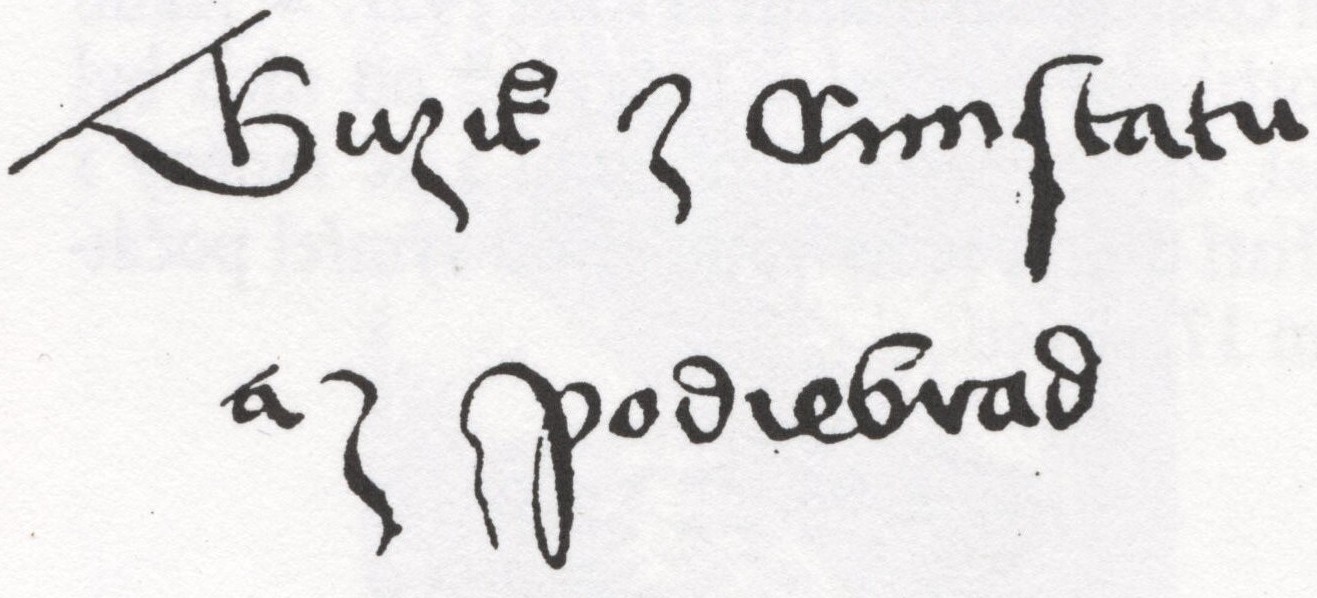 Girzik z Cunstatu
a z Podiebrad